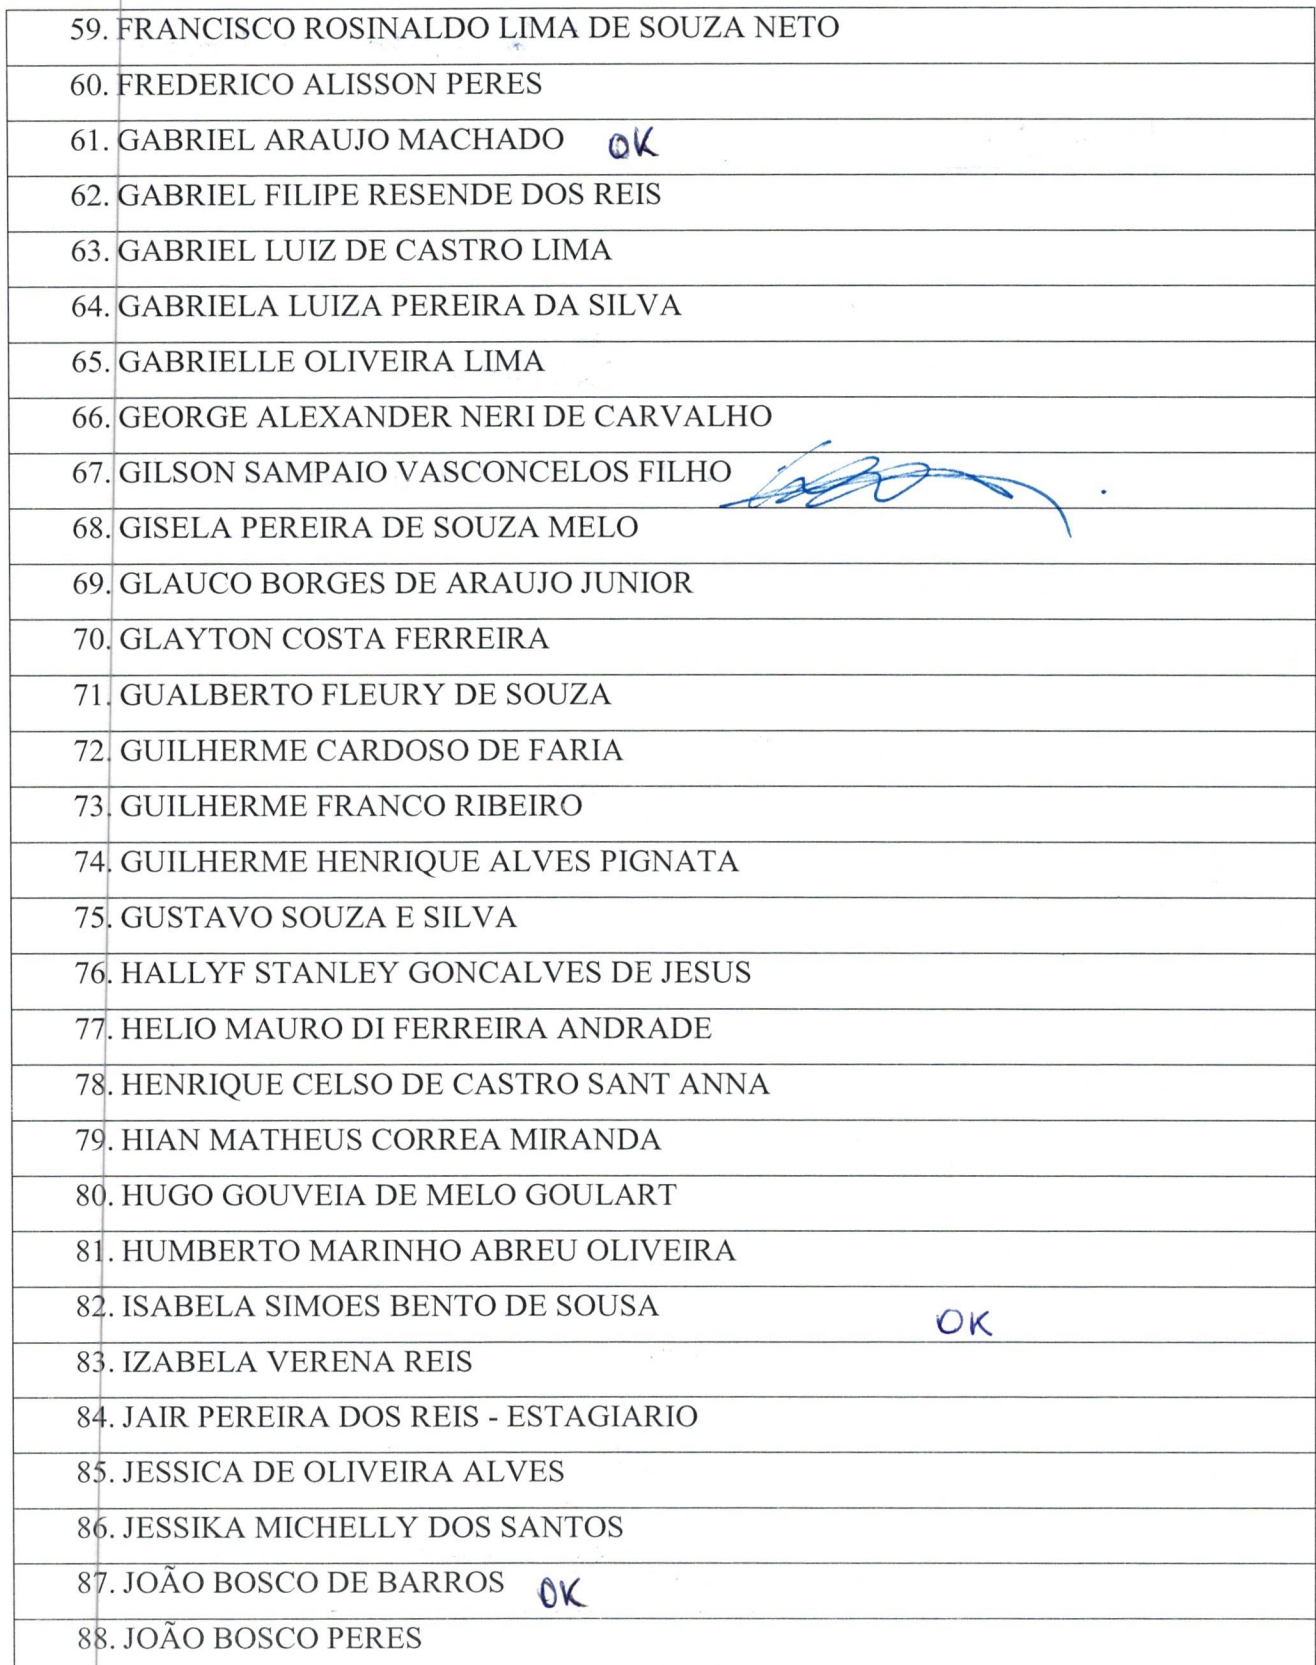 59. FRANCISCO ROSINALDO LIMA DE SOUZA NETO
60. FREDERICO ALISSON PERES
61. GABRIEL ARAUJO MACHADO OK
62. GABRIEL FILIPE RESENDE DOS REIS
63. GABRIEL LUIZ DE CASTRO LIMA
64. GABRIELA LUIZA PEREIRA DA SILVA
65. GABRIELLE OLIVEIRA LIMA
66. GEORGE ALEXANDER NERI DE CARVALHO
67. GILSON SAMPAIO VASCONCELOS FILHO
68. GISELA PEREIRA DE SOUZA MELO
69. GLAUCO BORGES DE ARAUJO JUNIOR
70. GLAYTON COSTA FERREIRA
71. GUALBERTO FLEURY DE SOUZA
72. GUILHERME CARDOSO DE FARIA
73. GUILHERME FRANCO RIBEIRO
74. GUILHERME HENRIQUE ALVES PIGNATA
75. GUSTAVO SOUZA E SILVA
76. HALLYF STANLEY GONCALVES DE JESUS
77. HELIO MAURO DI FERREIRA ANDRADE
78. HENRIQUE CELSO DE CASTRO SANT ANNA
79. HIAN MATHEUS CORREA MIRANDA
80. HUGO GOUVEIA DE MELO GOULART
81. HUMBERTO MARINHO ABREU OLIVEIRA
82. ISABELA SIMOES BENTO DE SOUSA OK
83. IZABELA VERENA REIS
84. JAIR PEREIRA DOS REIS - ESTAGIARIO
85. JESSICA DE OLIVEIRA ALVES
86. JESSIKA MICHELLY DOS SANTOS
87. JOÃO BOSCO DE BARROS OK
88. JOÃO BOSCO PERES